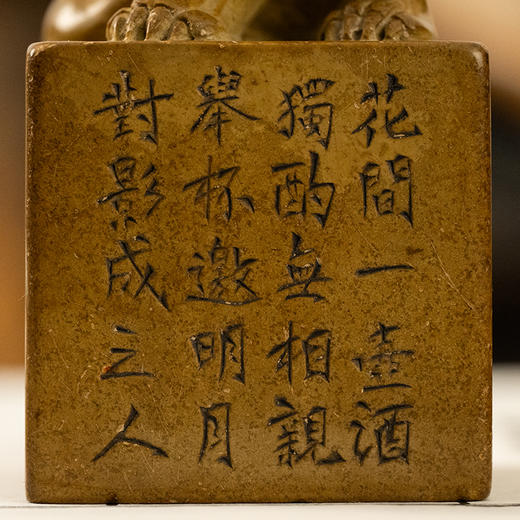 花間一壺酒
獨酌無相親
舉杯邀明月
對影成三人